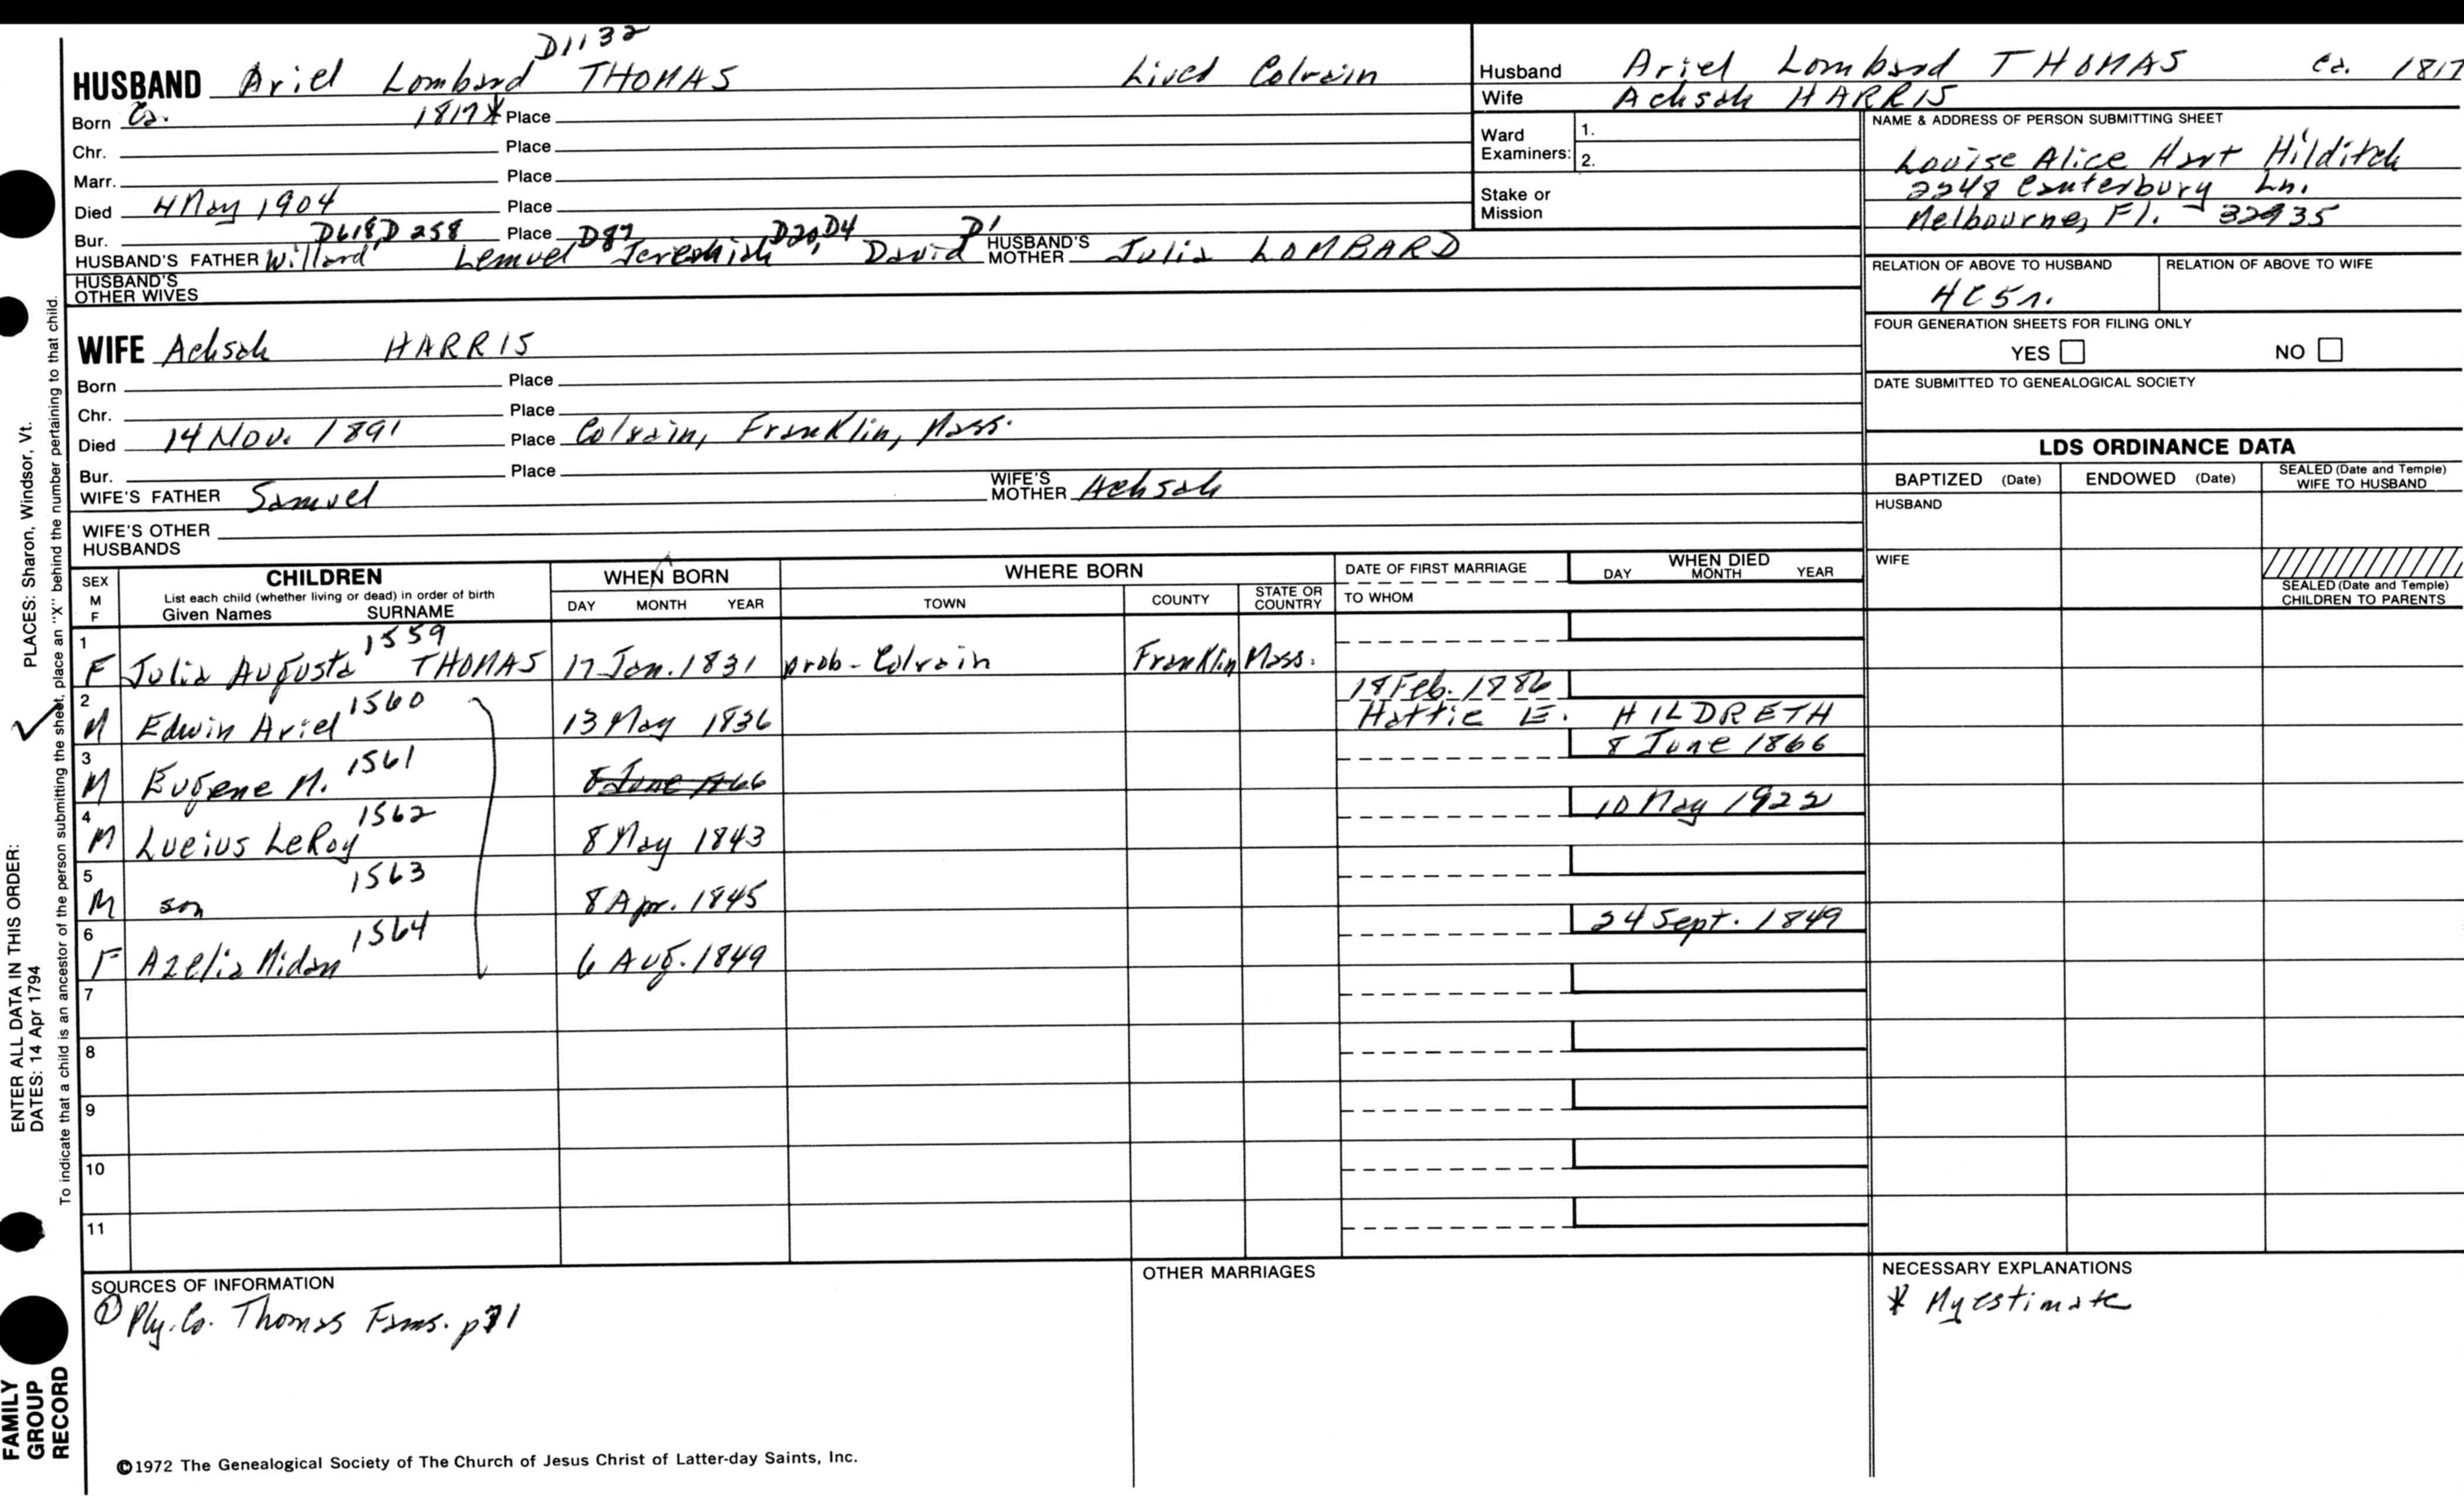 D1132
HUSBAND Ariel Lombard THOMAS Lived Colrain
Born Ca. 1817* Place
Chr. Place
Marr. Place
Died 4 May 1904 Place
Bur. Place
D618 D258 D87 D20, D4 D1
HUSBAND'S FATHER Willard Lemuel Jeremiah David HUSBAND'S MOTHER Julia LOMBARD
HUSBAND'S OTHER WIVES
WIFE Achsah HARRIS
Born Place
Chr. Place
Died 14 Nov. 1891 Place Colrain, Franklin, Mass.
Bur. Place
WIFE'S FATHER Samuel WIFE'S MOTHER Achsah
WIFE'S OTHER HUSBANDS
Husband Ariel Lombard THOMAS ca. 1817
Wife Achsah HARRIS
Ward Examiners: 1.
2.
Stake or Mission
NAME & ADDRESS OF PERSON SUBMITTING SHEET
Louise Alice Hart Hilditch
2248 Canterbury Ln.
Melbourne, Fl. 32935
RELATION OF ABOVE TO HUSBAND RELATION OF ABOVE TO WIFE
4C5r.
FOUR GENERATION SHEETS FOR FILING ONLY
YES NO
DATE SUBMITTED TO GENEALOGICAL SOCIETY
LDS ORDINANCE DATA
BAPTIZED (Date) ENDOWED (Date) SEALED (Date and Temple) WIFE TO HUSBAND
HUSBAND
WIFE
SEALED (Date and Temple) CHILDREN TO PARENTS
SEX M F
CHILDREN
List each child (whether living or dead) in order of birth
Given Names SURNAME
WHEN BORN
DAY MONTH YEAR
WHERE BORN
TOWN COUNTY STATE OR COUNTRY
DATE OF FIRST MARRIAGE
TO WHOM
WHEN DIED
DAY MONTH YEAR
1 F Julia Augusta 1559 THOMAS 17 Jan. 1831 prob. Colrain Franklin Mass.
2 M Edwin Ariel 1560 13 May 1836 18 Feb. 1886
Hattie E. HILDRETH
3 M Eugene M. 1561 8 June 1866 8 June 1866
4 M Lucius LeRoy 1562 8 May 1843 10 May 1922
5 M son 1563 8 Apr. 1845
6 F Azelia Midan 1564 6 Aug. 1849 24 Sept. 1849
7
8
9
10
11
SOURCES OF INFORMATION
① Ply. Co. Thomas Fams. p71
OTHER MARRIAGES
NECESSARY EXPLANATIONS
* My estimate
©1972 The Genealogical Society of The Church of Jesus Christ of Latter-day Saints, Inc.
PLACES: Sharon, Windsor, Vt.
To indicate that a child is an ancestor of the person submitting the sheet, place an "X" behind the number pertaining to that child.
ENTER ALL DATA IN THIS ORDER:
DATES: 14 Apr 1794
FAMILY
GROUP
RECORD